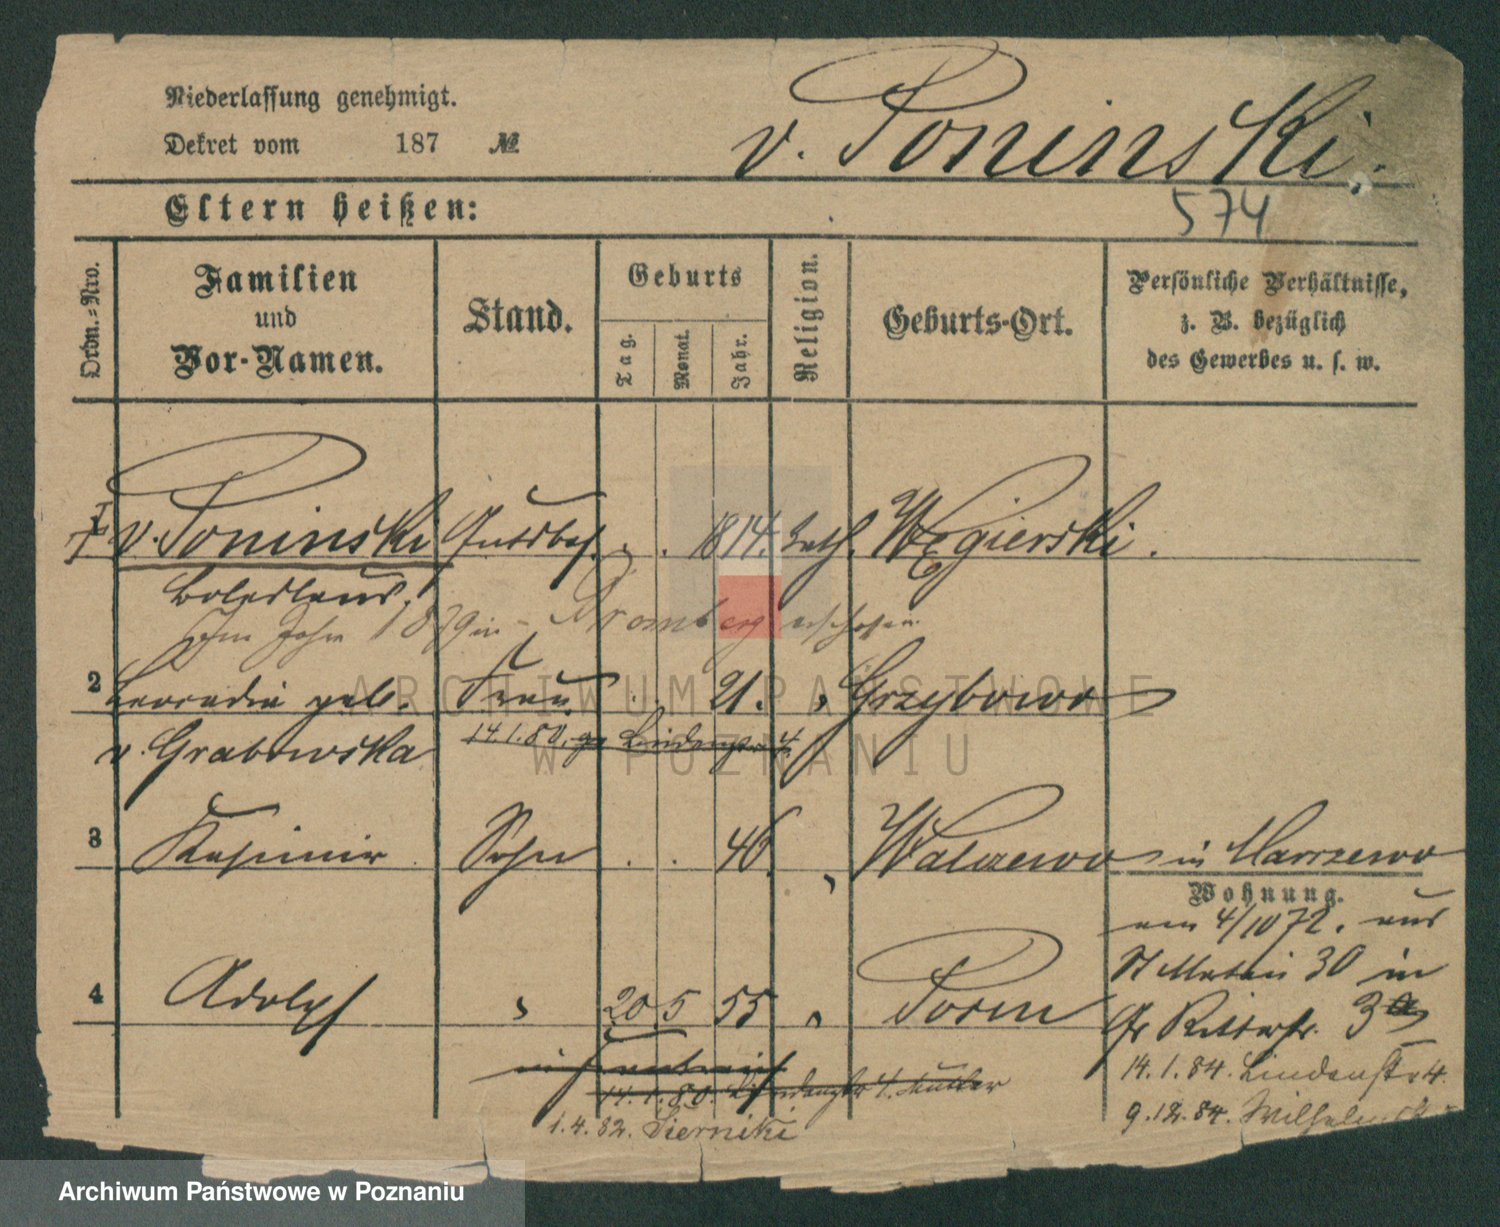 Niederlassung genehmigt.
Dekret vom 187 №
v. Poninski.
Eltern heißen:
574
Ordn.-Nro.
Familien
und
Vor-Namen.
Stand.
Geburts
Tag.
Monat.
Jahr.
Religion.
Geburts-Ort.
Persönliche Verhältnisse,
z. B. bezüglich
des Gewerbes u. s. w.
v. Poninski Gutsbes. . . 1814. kath. Węgierski.
Boleslaus.
Im Jahr 1879 in Bromberg
2 Leocadia geb. Frau . . 21. " Grzybowo
v. Grabowska 14.1.80. Lindenstr. 4.
3 Kasimir Sohn . . 46. " Walczewo in
Wohnung.
am 4/10 72. aus
St Martin 30 in
4 Adolph " 20 5 55 " Posen
Gr Ritterstr. 3a
in
14.1.80. Lindenstr 4. Mutter
14.1.84. Lindenstr 4.
1.4.82. Sierniki
9.12.84.
ARCHIWUM PAŃSTWOWE
W POZNANIU
Archiwum Państwowe w Poznaniu